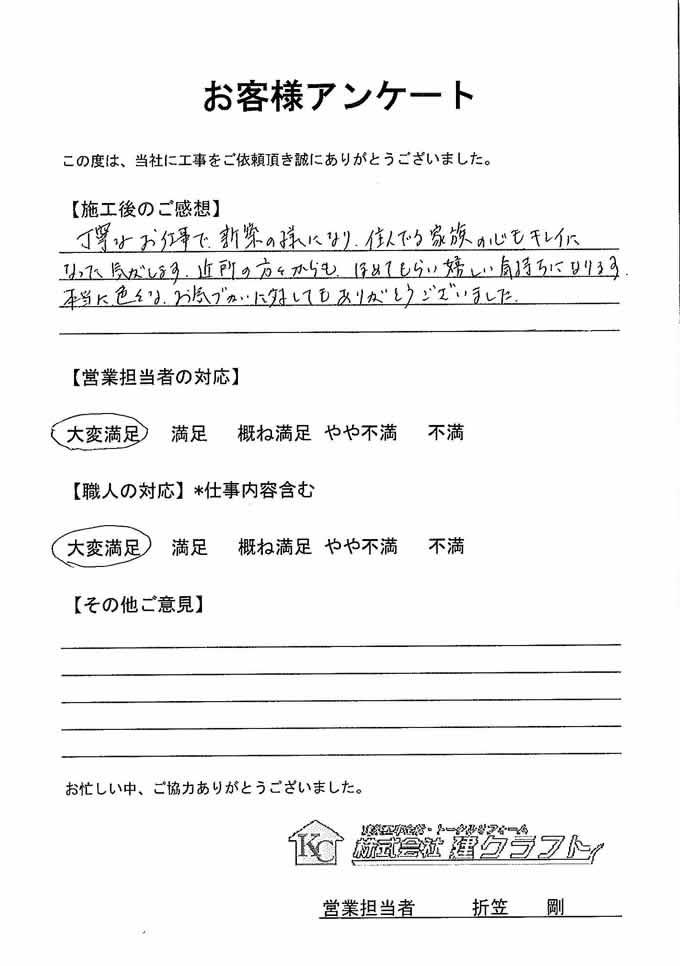 お客様アンケート
この度は、当社に工事をご依頼頂き誠にありがとうございました。
【施工後のご感想】
丁寧なお仕事で、新築の様になり、住んでる家族の心もキレイに
なった気がします。近所の方々からも、ほめてもらい嬉しい気持ちになります。
本当に色々な、お気づかいに対してもありがとうございました。
【営業担当者の対応】
大変満足 満足 概ね満足 やや不満 不満
【職人の対応】*仕事内容含む
大変満足 満足 概ね満足 やや不満 不満
【その他ご意見】
お忙しい中、ご協力ありがとうございました。
トータルリフォーム
KC 株式会社 建クラフト
営業担当者 折笠 剛